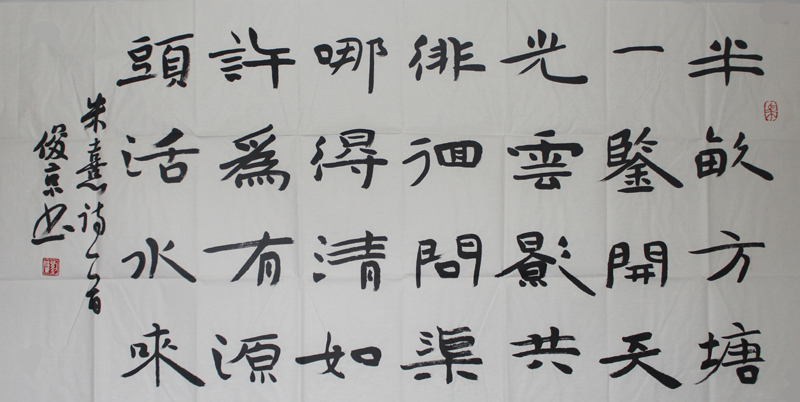 半畝方塘
一鑒開天
光雲影共
徘徊問渠
哪得清如
許爲有源
頭活水唻
朱熹诗一首
俊京书